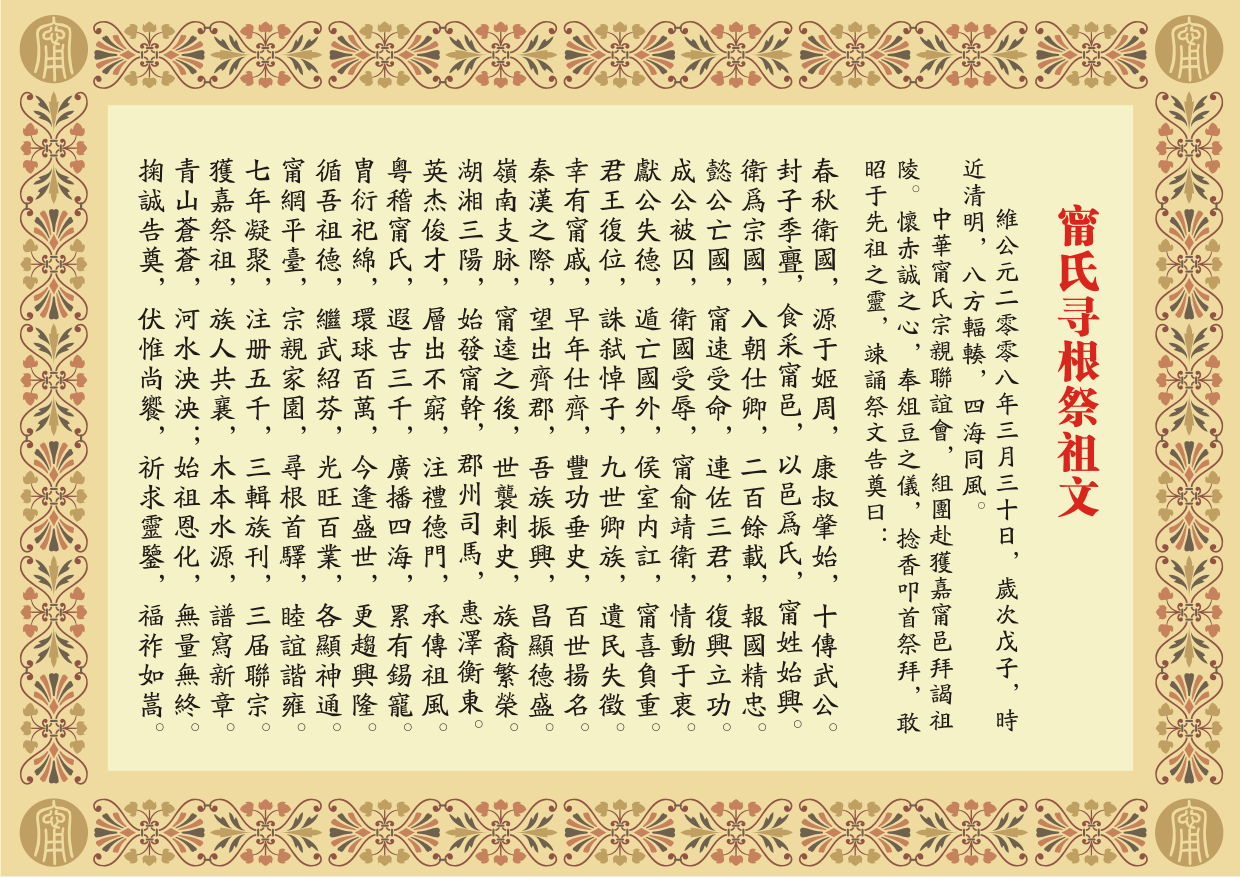 甯氏寻根祭祖文
維公元二零零八年三月三十日，歲次戊子，時
近清明，八方輻輳，四海同風。
中華甯氏宗親聯誼會，組團赴獲嘉甯邑拜謁祖
陵。懷赤誠之心，奉俎豆之儀，捻香叩首祭拜，敢
昭于先祖之靈，竦誦祭文告奠曰：
春秋衛國，源于姬周，康叔肇始，十傳武公。
封子季亹，食采甯邑，以邑爲氏，甯姓始興。
衛爲宗國，入朝仕卿，二百餘載，報國精忠。
懿公亡國，甯速受命，連佐三君，復興立功。
成公被囚，衛國受辱，甯俞靖衛，情動于衷。
獻公失德，遁亡國外，侯室内訌，甯喜負重。
君王復位，誅弑悼子，九世卿族，遺民失徵。
幸有甯戚，早年仕齊，豐功垂史，百世揚名。
秦漢之際，望出齊郡，吾族振興，昌顯德盛。
嶺南支脉，甯逵之後，世襲剌史，族裔繁榮。
湖湘三陽，始發甯幹，郡州司馬，惠澤衡東。
英杰俊才，層出不窮，注禮德門，承傳祖風。
粤稽甯氏，遐古三千，廣播四海，累有錫寵。
胄衍祀綿，環球百萬，今逢盛世，更趨興隆。
循吾祖德，繼武紹芬，光旺百業，各顯神通。
甯網平臺，宗親家園，尋根首驛，睦誼諧雍。
七年凝聚，注册五千，三輯族刊，三届聯宗。
獲嘉祭祖，族人共襄，木本水源，譜寫新章。
青山蒼蒼，河水泱泱；始祖恩化，無量無終。
掬誠告奠，伏惟尚饗，祈求靈鑒，福祚如嵩。